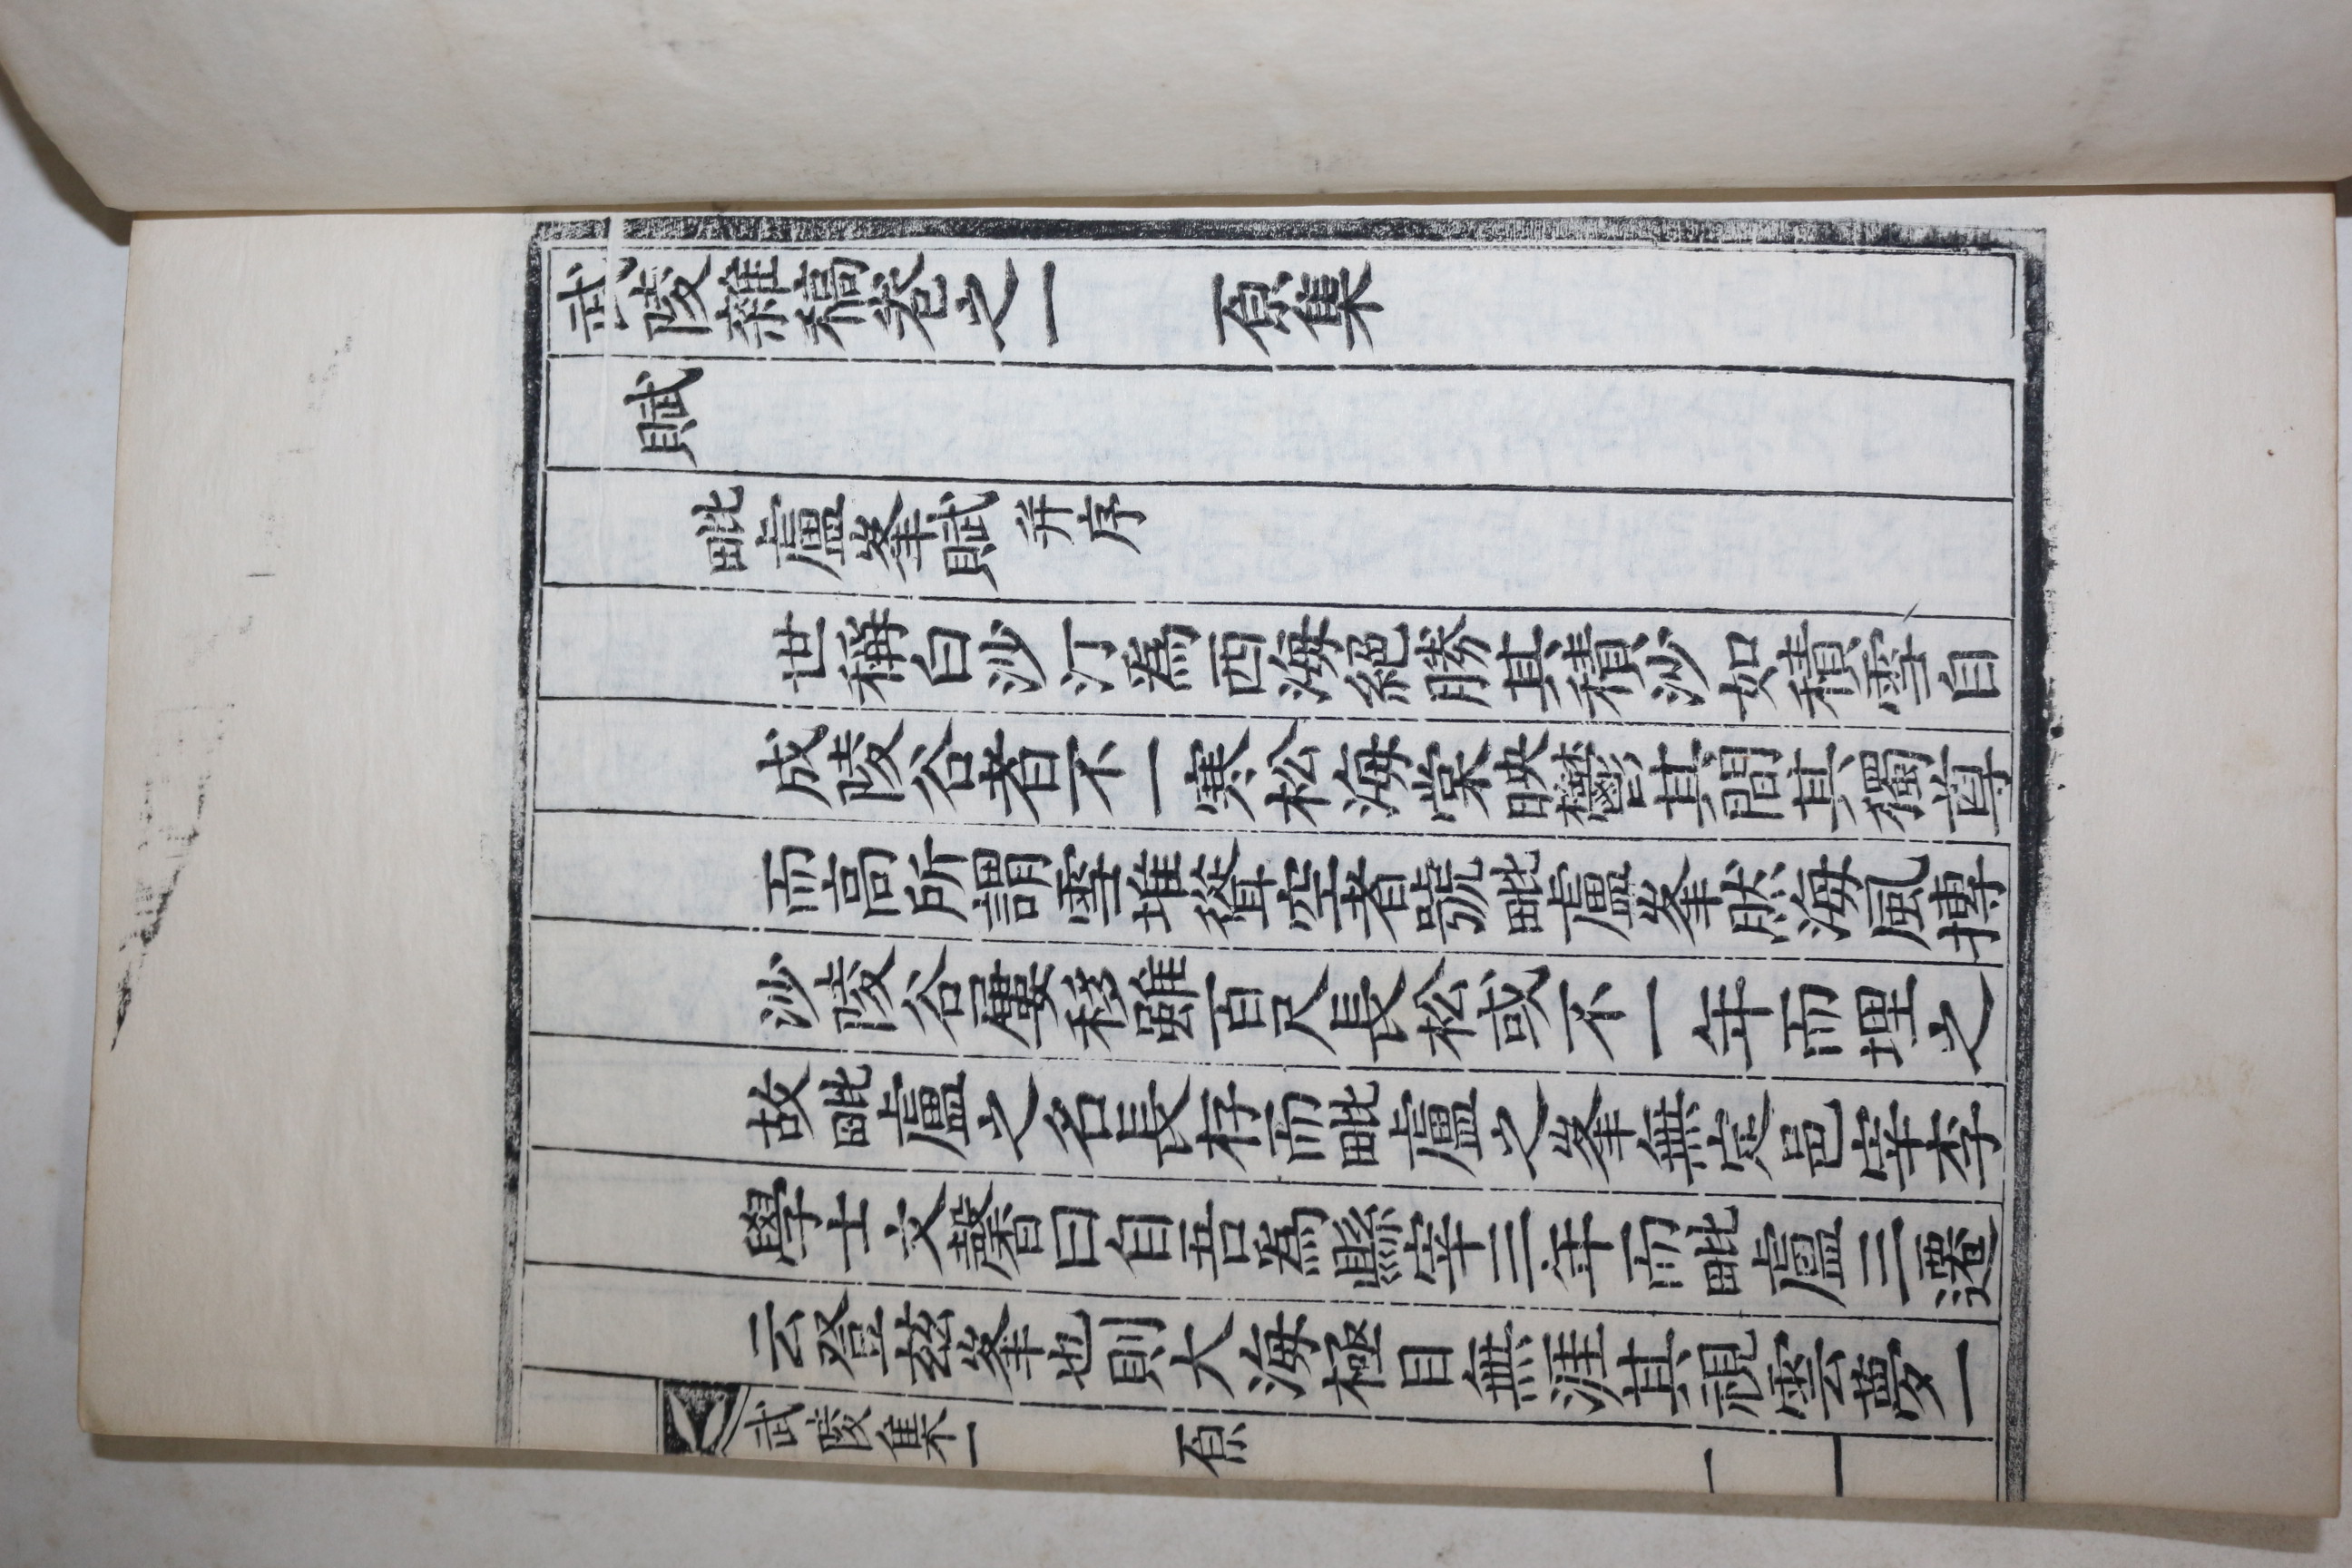 武陵雜稿卷之一　原集
賦
毗盧峯賦 并序
世稱白沙汀爲西海絕勝其積沙如積雪自
成陵谷者不一寒松海棠映鬱其間其獨尊
而高所謂雪堆聳空者號毗盧峯然海風摶
沙陵谷屢移雖百尺長松或不一年而埋之
故毗盧之名長存而毗盧之峯無定邑宰李
學士文馨曰自吾爲縣宰三年而毗盧三遷
云登玆峯也則大海極目無涯其視雲夢一
武陵集一　原　一